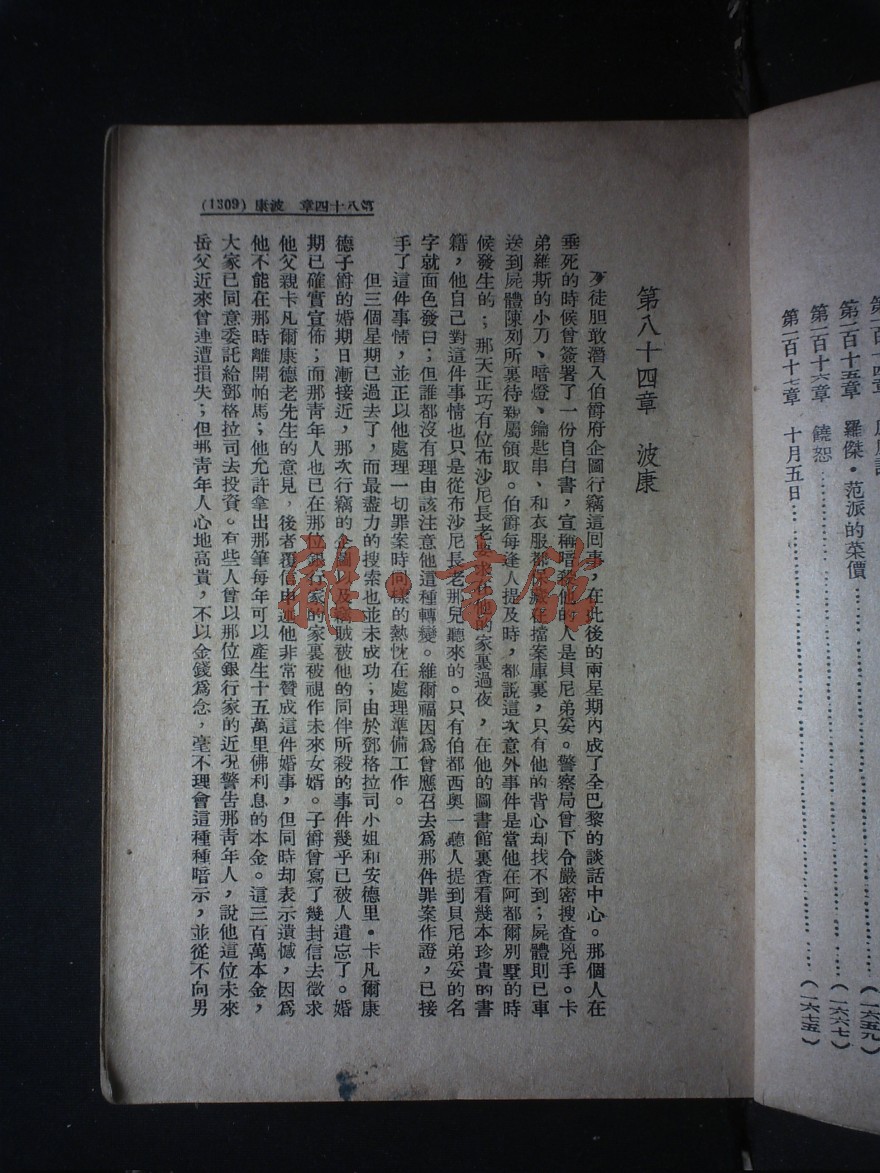 第一百十五章 羅傑·范派的菜價………………（一六六七）
第一百十六章 饒恕………………（一六六七）
第一百十七章 十月五日………………（一六七五）
第八十四章 波康
歹徒胆敢潛入伯爵府企圖行竊這回事，在此後的兩星期內成了全巴黎的談話中心。那個人在
垂死的時候曾簽署了一份自白書，宣稱暗殺他的人是貝尼弟妥。警察局曾下令嚴密搜查兇手。卡
弟羅斯的小刀、暗燈、鑰匙串、和衣服都保藏在擋案庫裏，只有他的背心却找不到；屍體則已車
送到屍體陳列所裏待親屬領取。伯爵每逢人提及時，都說這次意外事件是當他在阿都爾別墅的時
候發生的；那天正巧有位布沙尼長老要求在他的家裏過夜，在他的圖書館裏查看幾本珍貴的書
籍，他自己對這件事情也只是從布沙尼長老那兒聽來的。只有伯都西奧一聽人提到貝尼弟妥的名
字就面色發白；但誰都沒有理由該注意他這種轉變。維爾福因爲曾應召去爲那件罪案作證，已接
手了這件事情，並正以他處理一切罪案時同樣的熱忱在處理準備工作。
但三個星期已過去了，而最盡力的搜索也並未成功；由於鄧格拉司小姐和安德里·卡凡爾康
德子爵的婚期日漸接近，那次行竊的企圖以及竊賊被他的同伴所殺的事件幾乎已被人遺忘了。婚
期已確實宣佈；而那青年人也已在那位銀行家的家裏被視作未來女婿。子爵曾寫了幾封信去徵求
他父親卡凡爾康德老先生的意見，後者覆信申述他非常贊成這件婚事，但同時却表示遺憾，因爲
他不能在那時離開帕馬；他允許拿出那筆每年可以產生十五萬里佛利息的本金。這三百萬本金，
大家已同意委託給鄧格拉司去投資。有些人曾以那位銀行家的近況警告那青年人，說他這位未來
岳父近來曾連遭損失；但那青年人心地高貴，不以金錢爲念，毫不理會這種種暗示，並從不向男
第八十四章 波康 (1309)
雜·書館